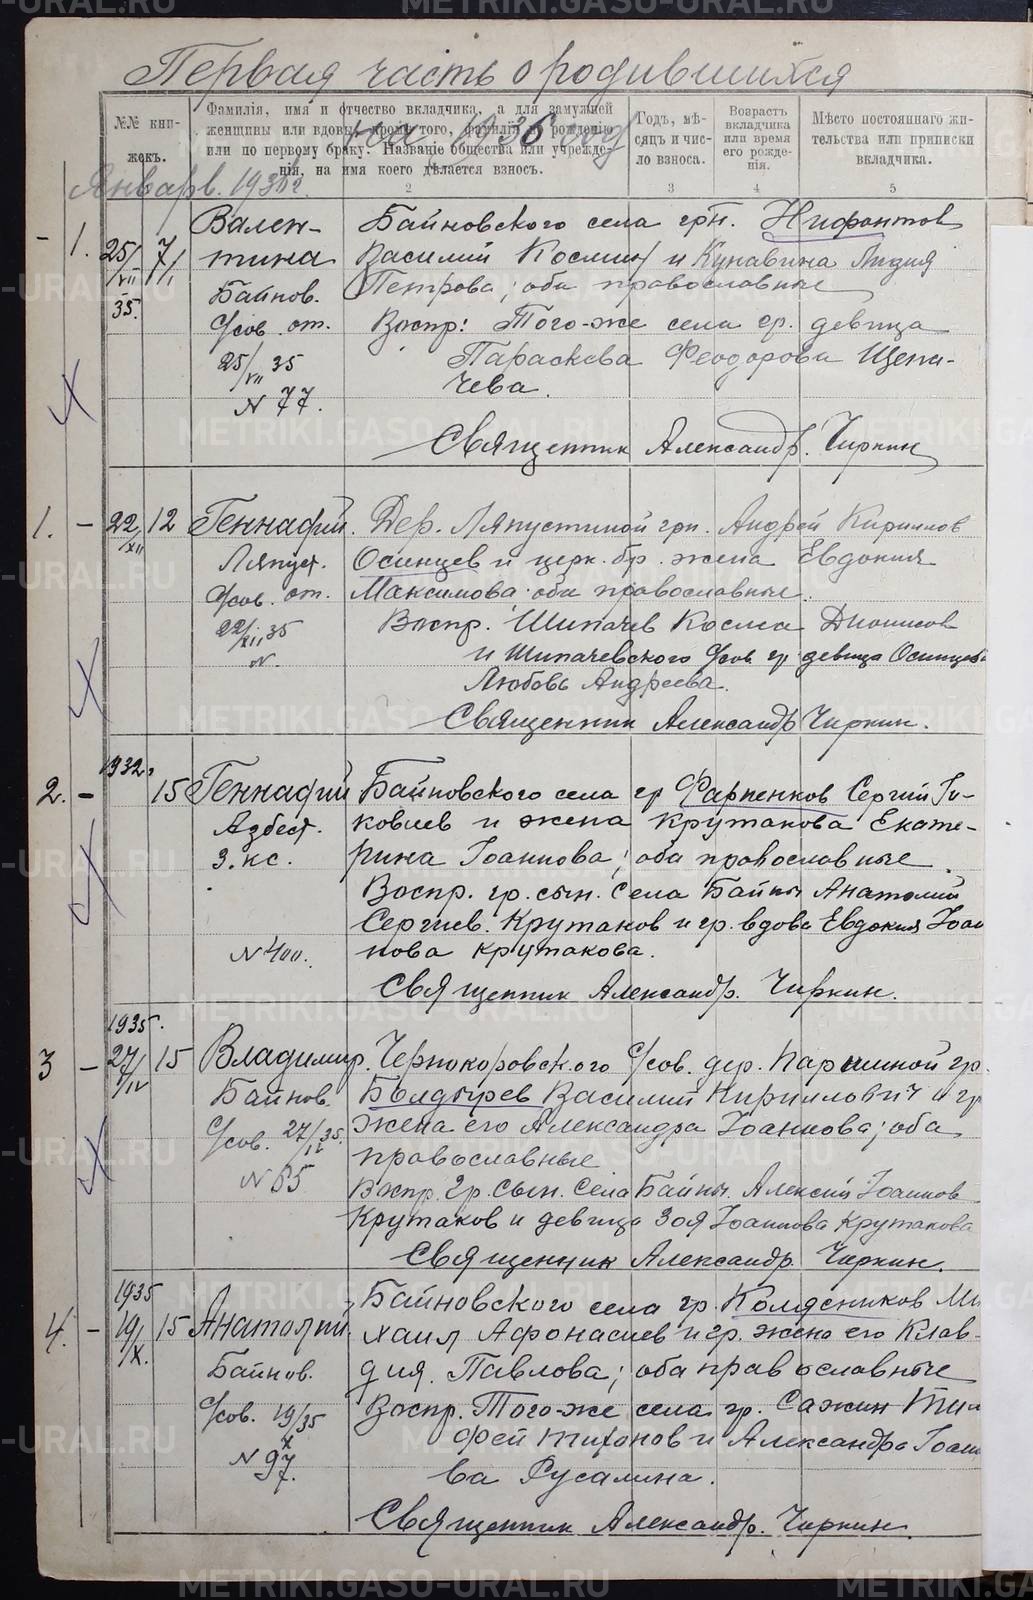 Первая часть о родившихся
на 1936 год
№№ кни-
жекъ.
Фамилія, имя и отчество вкладчика, а для замужней
женщины или вдовы, кромѣ того, фамилія по рожденію
или по первому браку. Названіе общества или учрежде-
нія, на имя коего дѣлается взносъ.
Годъ, мѣ-
сяцъ и чис-
ло взноса.
Возрастъ
вкладчика
или время
его рожде-
нія.
Мѣсто постояннаго жи-
тельства или приписки
вкладчика.
2 3 4 5
Январь. 1936 г.
1. 25/VII 35. 7/I
Вален-
тина
Байнов.
с/сов. от.
25/VII 35
N 77.
Байновского села грн. Нифонтов
Василий Космин и Кунавина Лидия
Петрова; оба православные
Воспр: Того-же села гр. девица
Параскева Феодорова Щепи-
чева.
Священник Александр. Чиркин
1. – 22/XII 12
Геннадий.
Ляпуст.
с/сов. от.
22/XII 35
N.
Дер. Ляпустиной грн. Андрей Кириллов
Осинцев и церк. бр. жена Евдокия
Максимова оба православные.
Воспр. Шипачев Косма Дионисов
и Шипачевского с/сов. гр девица Осинцева
Любовь Андреева.
Священник Александр Чиркин.
2. – 1932. 15
Геннадий
Азбест.
З.кс.
N 400.
Байновского села гр Фарпенков Сергий Їа-
ковлев и жена Крутакова Екате-
рина Їоаннова; оба православные.
Воспр. гр. сын. Села Байны Анатолий
Сергиев. Крутаков и гр. вдова Евдокия Їоан
нова Крутакова.
Священник Александр. Чиркин.
3 – 1935. 27/IV 15
Владимир.
Байнов.
с/сов. 27/IV 35.
N 65
Чернокоровского с/сов. дер. Паршиной гр.
Болдырев Василий Кириллович и гр
жена его Александра Їоаннова; оба
православные
Воспр. гр. сын. Села Байны. Алексий Їоаннов
Крутаков и девица Зоя Їоаннова Крутакова
Священник Александр. Чиркин.
4. – 1935 19/X. 15
Анатолий
Байнов.
с/сов. 19/X 35
N 97.
Байновского села гр. Колясников Ми
хаил Афонасиев и гр. жена его Клав-
дия. Павлова; оба православные
Воспр. Того-же села гр. Сажин Тим
фей Тихонов и Александра Їоанн
ва Русалина.
Священник Александр. Чиркин.
METRIKI.GASO-URAL.RU